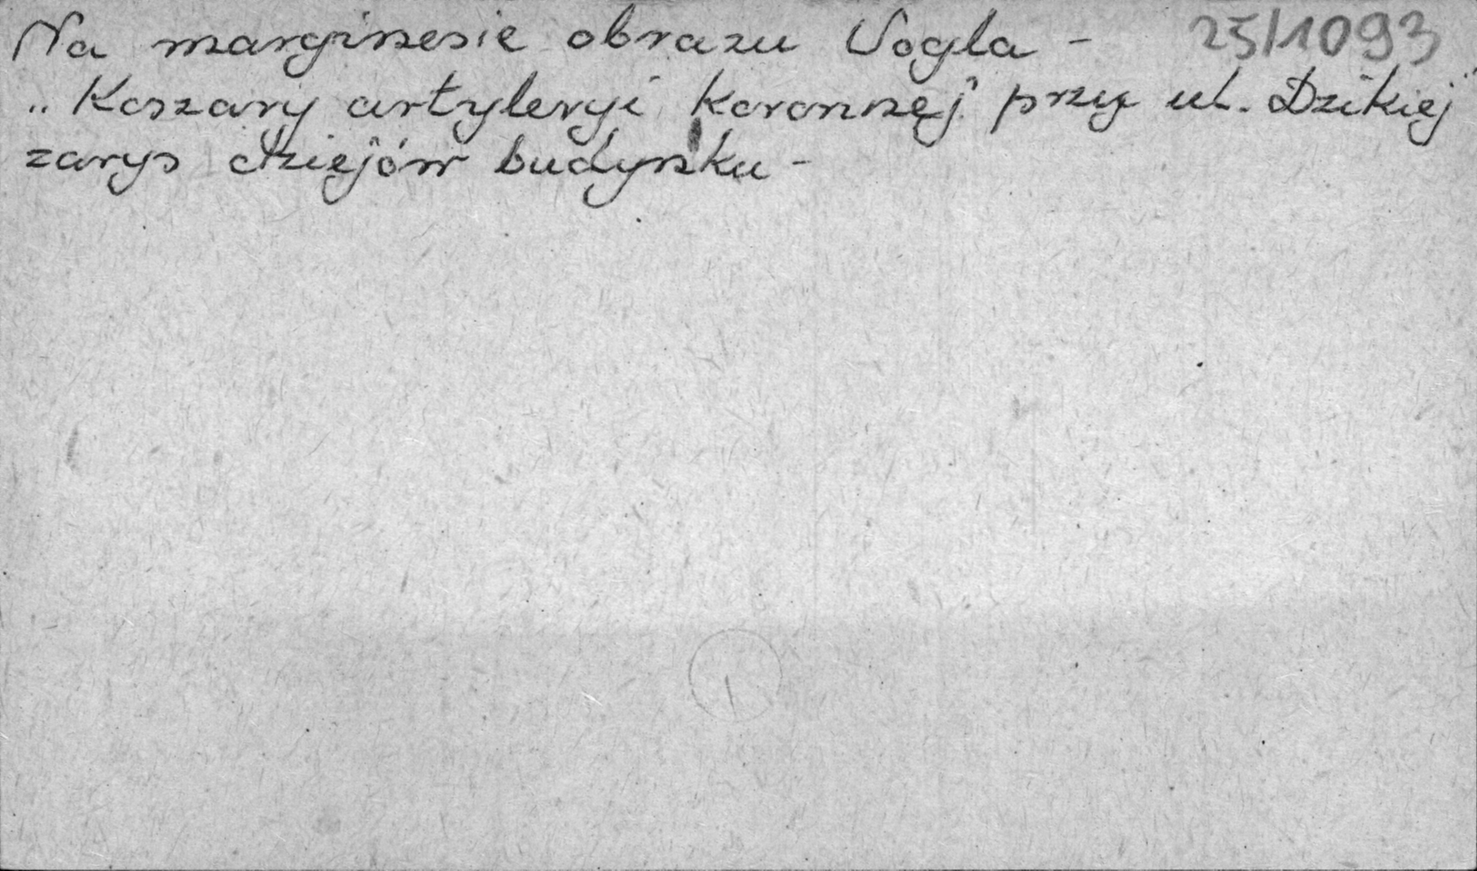 Na marginesie obrazu Vogla - 25/1093
„Koszary artyleryi koronnej" przy ul. Dzikiej"
zarys dziejów budynku -